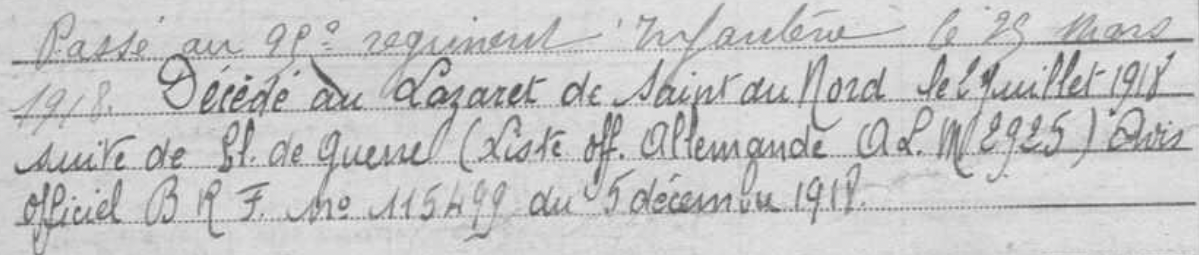 Passé au 99e regiment Infanterie le 25 Mars
1918. Décédé au Lazaret de Saint du Nord le 2 Juillet 1918
suite de Bl. de guerre (Liste off. Allemande A.L.M 2925) Avis
officiel B R F. no 115499 du 5 décembre 1918.